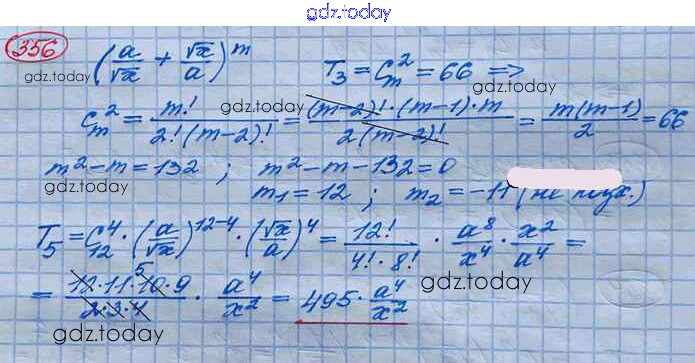 gdz.today
356 (a/√x + √x/a)^m T₃ = C_m^2 = 66 =>
gdz.today gdz.today
C_m^2 = m!/(2!(m-2)!) = ((m-2)!·(m-1)·m)/(2(m-2)!) = m(m-1)/2 = 66
gdz.today
m²-m=132 ; m²-m-132=0
gdz.today
m₁=12 ; m₂=-11 (не
T₅ = C_12^4 · (a/√x)^(12-4) · (√x/a)^4 = 12!/(4!·8!) · a⁸/x⁴ · x²/a⁴ =
gdz.today gdz.today
= (12·11·10·9)/(2·3·4) · a⁴/x² = 495 · a⁴/x²
5
gdz.today gdz.today